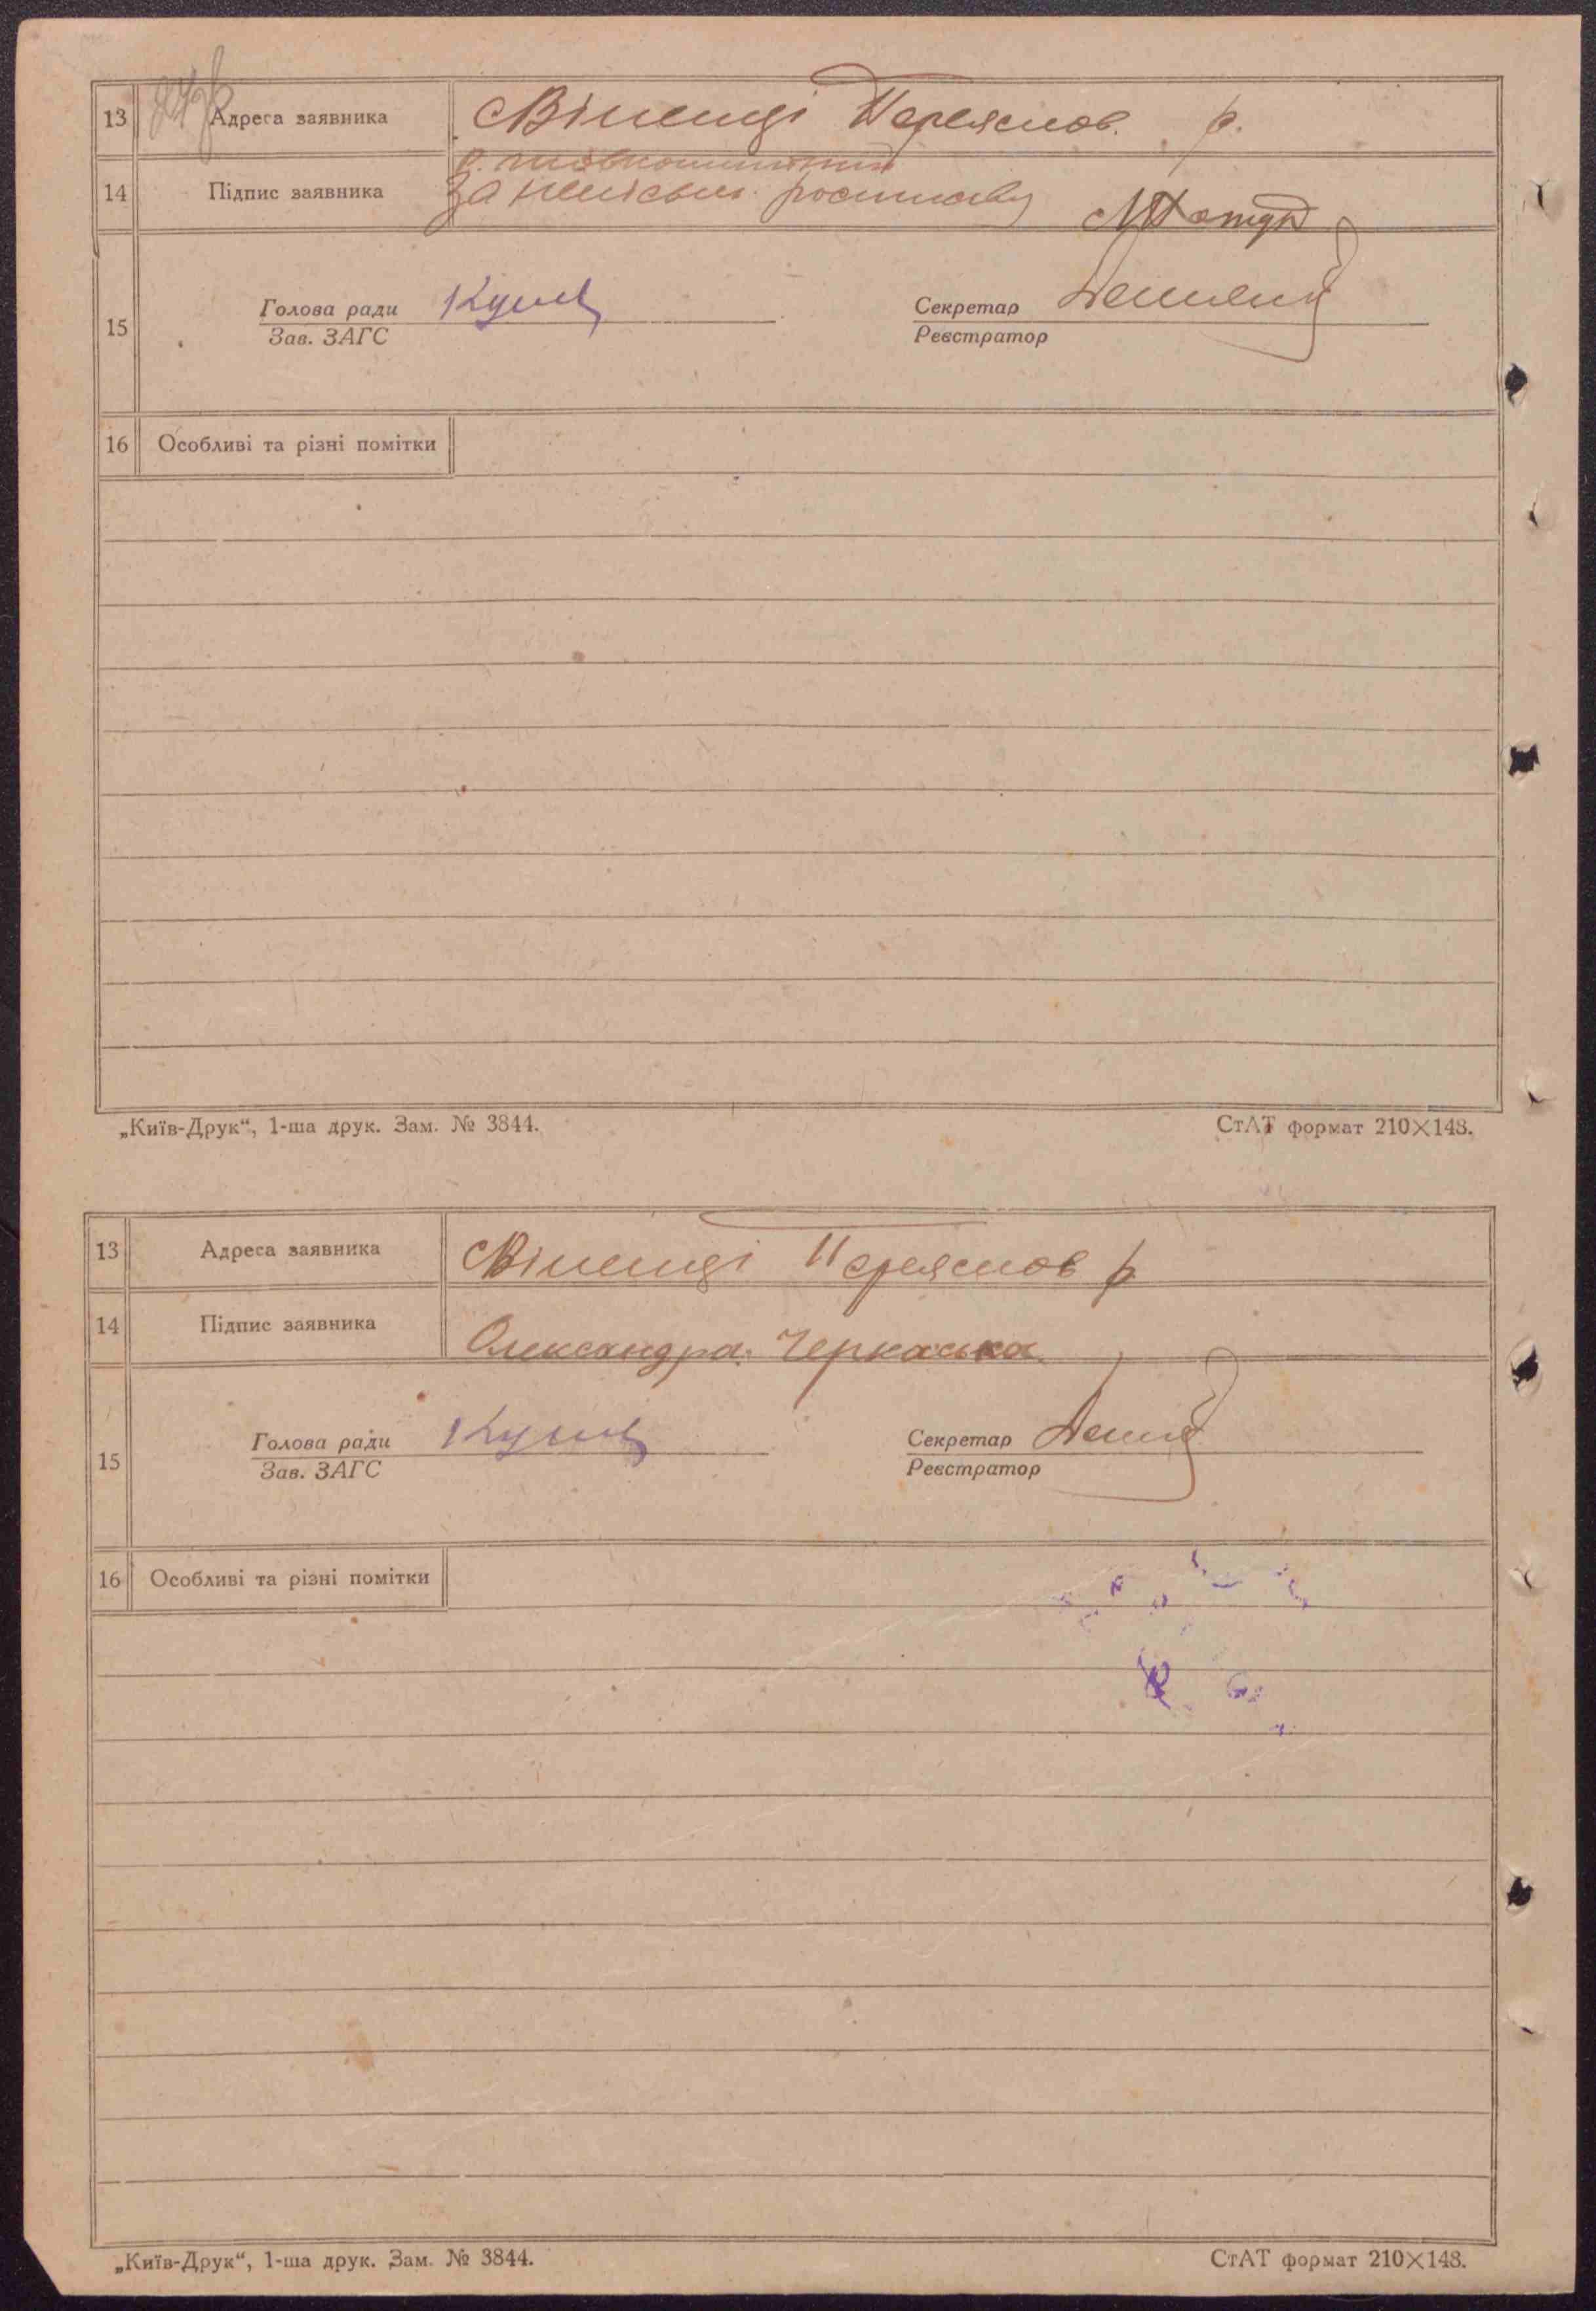 13 Адреса заявника Віненці Переяслов. р.
14 Підпис заявника За неписьм. росписавсь
15 Голова ради Секретар
Зав. ЗАГС Реєстратор
16 Особливі та різні помітки
„Київ-Друк“, 1-ша друк. Зам. № 3844. СтАТ формат 210×148.
13 Адреса заявника Віненці Переяслов р.
14 Підпис заявника Олександра Черкаська
15 Голова ради Секретар
Зав. ЗАГС Реєстратор
16 Особливі та різні помітки
„Київ-Друк“, 1-ша друк. Зам. № 3844. СтАТ формат 210×148.